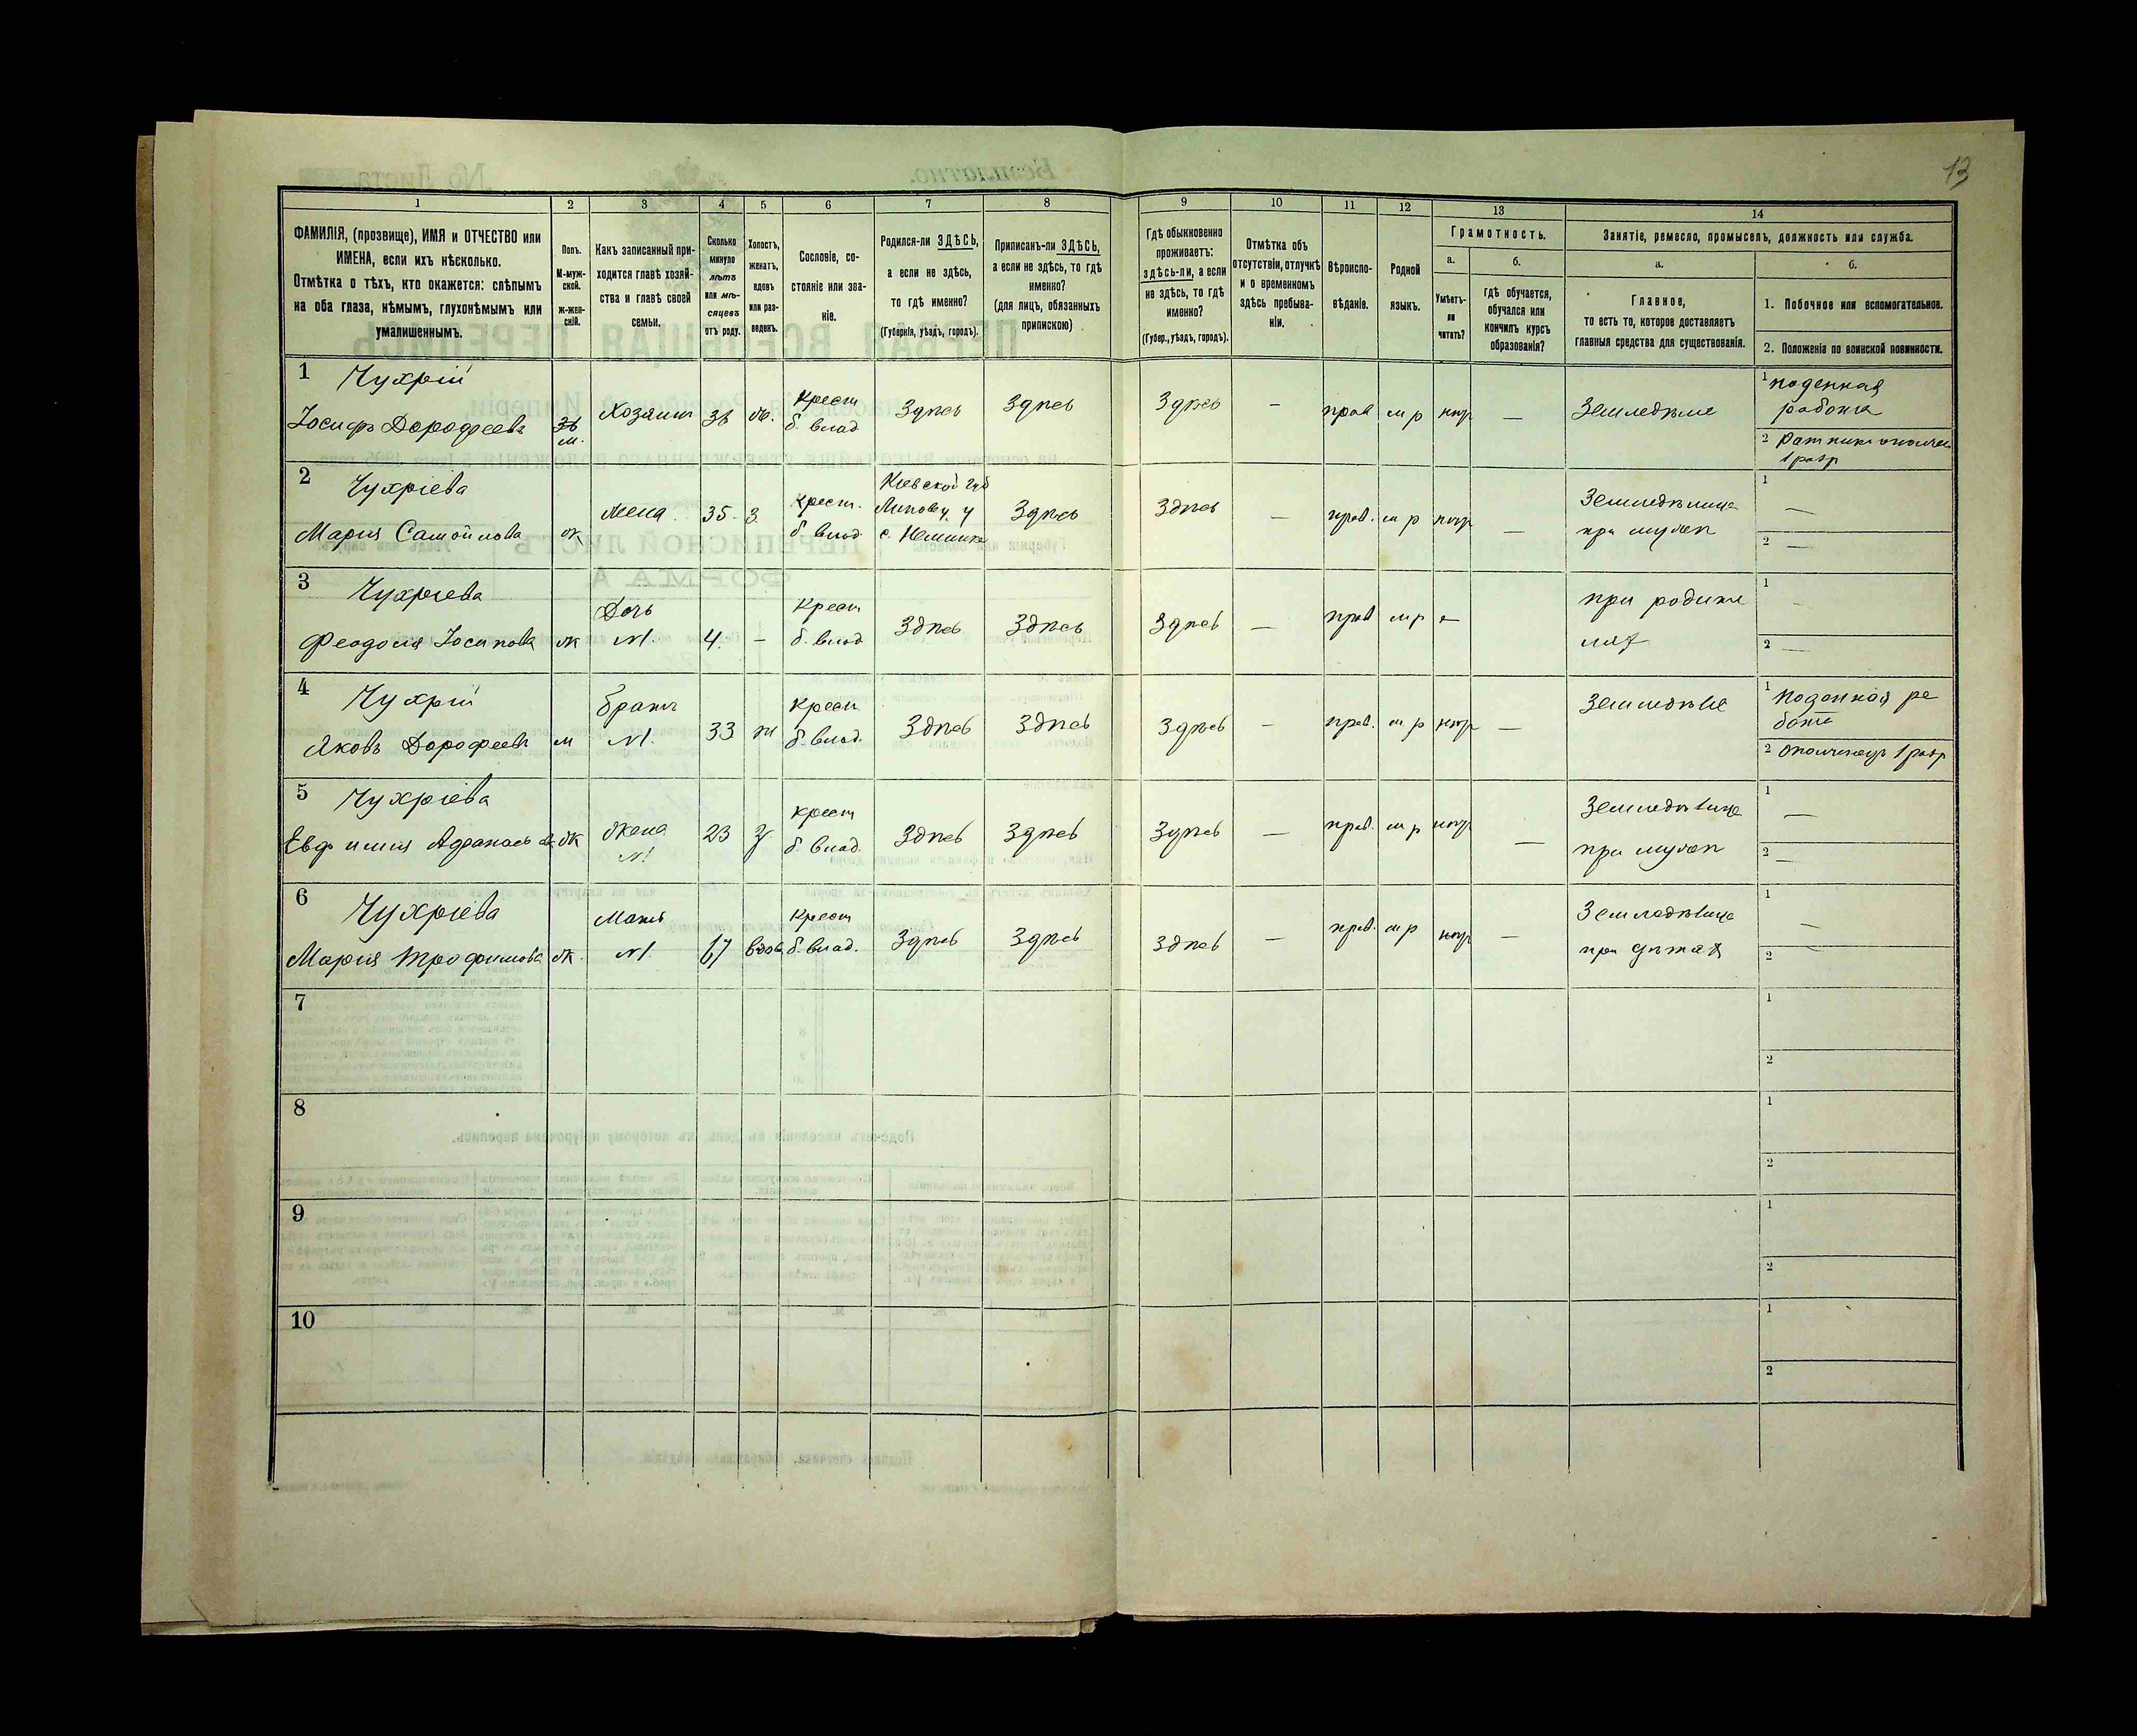 13
1 2 3 4 5 6 7 8 9 10 11 12 13 14
ФАМИЛІЯ, (прозвище), ИМЯ и ОТЧЕСТВО или
ИМЕНА, если ихъ нѣсколько.
Отмѣтка о тѣхъ, кто окажется: слѣпымъ
на оба глаза, нѣмымъ, глухонѣмымъ или
умалишеннымъ.
Полъ.
М-муж-
ской.
Ж-жен-
скій.
Какъ записанный при-
ходится главѣ хозяй-
ства и главѣ своей
семьи.
Сколько
минуло
лѣтъ
или мѣ-
сяцевъ
отъ роду.
Холостъ,
женатъ,
вдовъ
или раз-
веденъ.
Сословіе, со-
стояніе или зва-
ніе.
Родился-ли ЗДѢСЬ,
а если не здѣсь,
то гдѣ именно?
(Губернія, уѣздъ, городъ).
Приписанъ-ли ЗДѢСЬ,
а если не здѣсь, то гдѣ
именно?
(для лицъ, обязанныхъ
припискою)
Гдѣ обыкновенно
проживаетъ:
здѣсь-ли, а если
не здѣсь, то гдѣ
именно?
(Губер., уѣздъ, городъ).
Отмѣтка объ
отсутствіи, отлучкѣ
и о временномъ
здѣсь пребыва-
ніи.
Вѣроиспо-
вѣданіе.
Родной
языкъ.
Грамотность.
а.
Умѣетъ-
ли
читать?
б.
гдѣ обучается,
обучался или
кончилъ курсъ
образованія?
Занятіе, ремесло, промыселъ, должность или служба.
а.
Главное,
то есть то, которое доставляетъ
главныя средства для существованія.
б.
1. Побочное или вспомогательное.
2. Положеніе по воинской повинности.
1 Чухрій
Іосифъ Дорофеевъ
м.
Хозяинъ
36
Крест
б. влад
Здѣсь
Здѣсь
Здѣсь
—
прав
м р
нѣтъ
—
Земледѣліе
1 поденная
работа
2 Ратникъ ополчен
1 разр
2 Чухріева
Марія Самойлова
ж
Жена
35
з
крест.
б. влад
Кіевской губ
Липовец. у
Здѣсь
Здѣсь
—
прав.
м р
нѣтъ
—
Земледѣлица
при мужѣ
1 —
2 —
3 Чухріева
Феодосія Іосипова
ж
Дочь
№1.
4.
—
Крест
б. влад
Здѣсь
Здѣсь
Здѣсь
—
прав
м р
—
при родите
ляхъ
1 -
2 —
4 Чухрій
Яковъ Дорофеевъ
м
братъ
№1.
33
ж
крест
б. влад.
Здѣсь
Здѣсь
Здѣсь
—
прав.
м р
нѣтъ
—
Земледѣліе
1 поденная ра
бота
2 ополченецъ 1 разр
5 Чухріева
Евфимія Афанасьева
ж
жена
№4
23
з
крест
б. влад.
Здѣсь
Здѣсь
Здѣсь
—
прав.
м р
нѣтъ
—
Земледѣлица
при мужѣ
1 —
2 —
6 Чухріева
Марія Трофимова
ж.
Мать
№1.
67
вдова
крест
б. влад.
Здѣсь
Здѣсь
Здѣсь
—
прав.
м р
нѣтъ
—
Земледѣлица
при дѣтяхъ
1 —
2 —
7
1
2
8
1
2
9
1
2
10
1
2